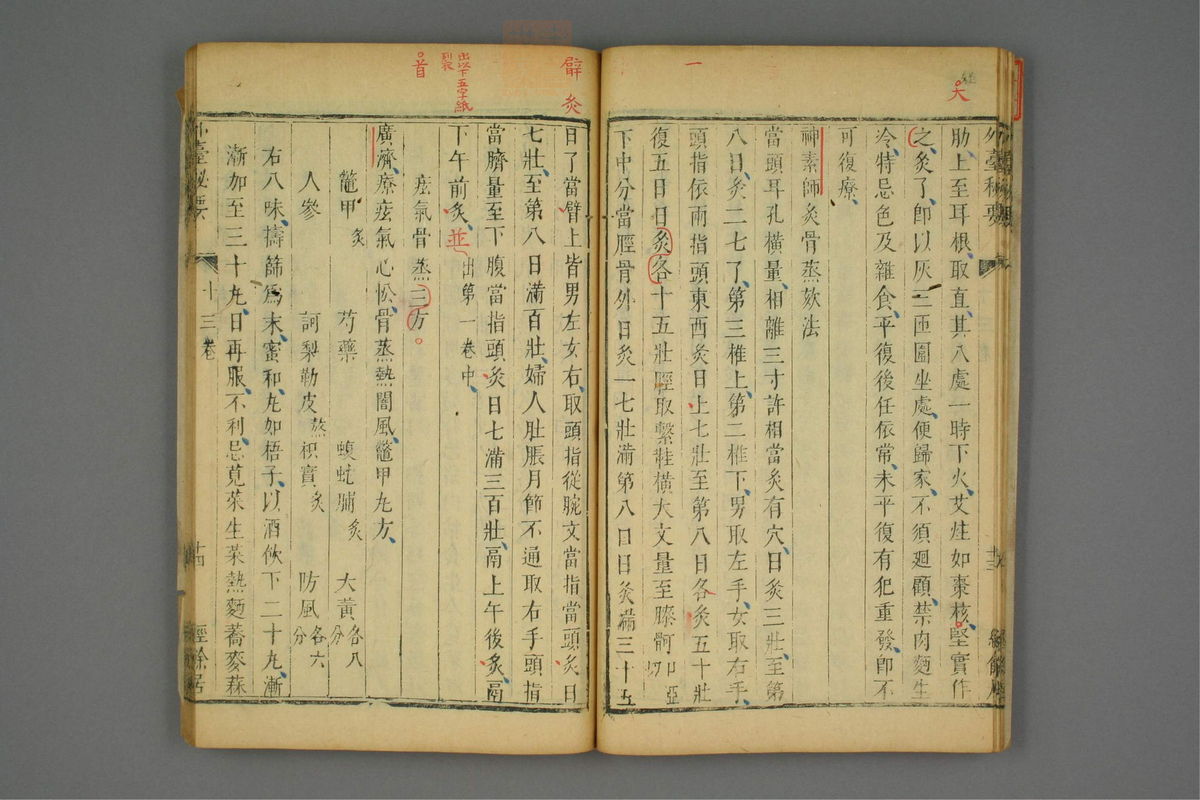 肋上至耳根取直其八處一時下火艾炷如棗核堅實作
之灸了卽以灰三匝圍坐處便歸家不須廻顧禁肉麵生
冷特忌色及雜食平復後任依常未平復有犯重發卽不
可復療
神素師灸骨蒸欬法
當頭耳孔橫量相離三寸許相當灸有穴日灸三壯至第
八日灸二七了第三椎上第二椎下男取左手女取右手
頭指依兩指頭東西灸日上七壯至第八日各灸五十壯
復五日日灸各十五壯脛取繫鞋橫大文量至膝
下中分當脛骨外日灸一七壯滿第八日日灸滿三十五
日了當臂上皆男左女右取頭指從腕文當指當頭灸日
七壯至第八日滿百壯婦人肚脹月節不通取右手頭指
當臍量至下腹當指頭灸日七滿三百壯鬲上午後灸鬲
下午前灸並出第一卷中
痃氣骨蒸三方
廣濟療痃氣心忪骨蒸熱闇風鼈甲丸方
鼈甲灸 芍藥 蝮蛇脯炙 大黃各八分
人參 訶梨勒皮熬 枳實炙 防風各六分
右八味擣篩爲末蜜和丸如梧子以酒飲下二十丸漸
漸加至三十丸日再服不利忌莧菜生菜熱麵蕎麥蒜
外臺秘要 十三卷 十四 經餘居
外臺秘要
大
一
臂 灸
出以下五字紙
首